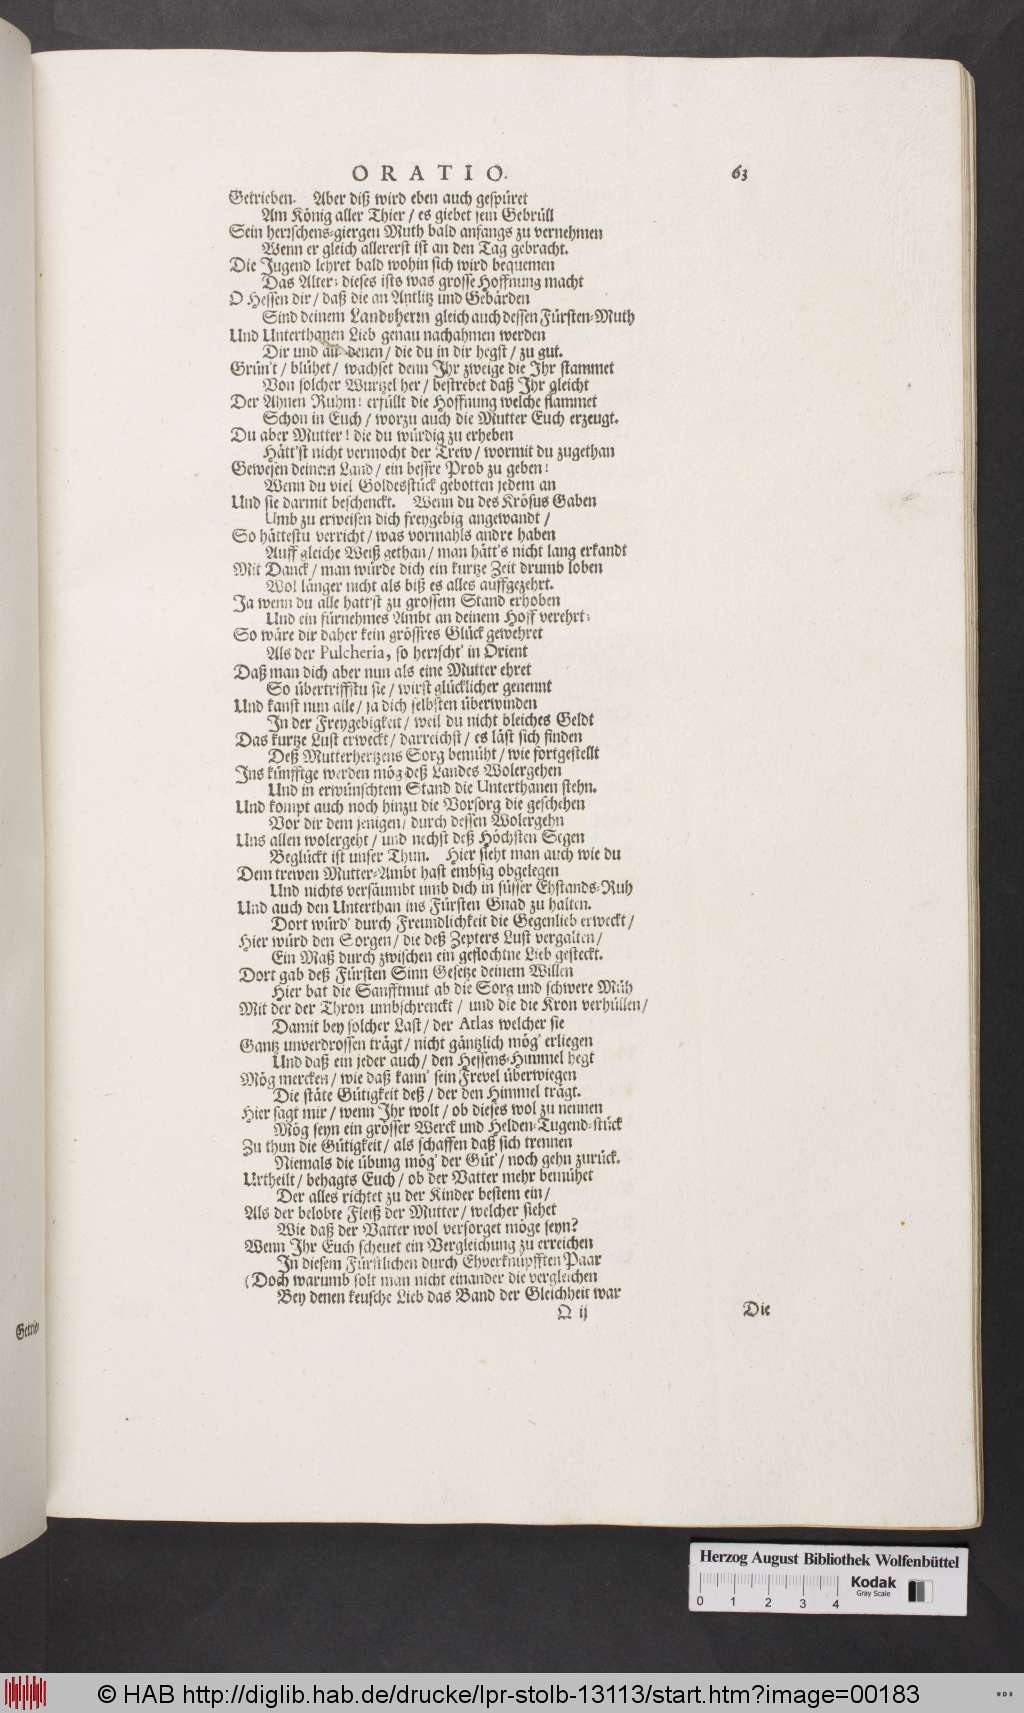 ORATIO. 63
Getrieben. Aber diß wird eben auch gespüret
Am König aller Thier / es giebet sein Gebrüll
Sein herrschens-giergen Muth bald anfangs zu vernehmen
Wenn er gleich allererst ist an den Tag gebracht.
Die Jugend lehret bald wohin sich wird bequemen
Das Alter: dieses ists was grosse Hoffnung macht
O Hessen dir / daß die an Antlitz und Gebärden
Sind deinem Landsherrn gleich auch dessen Fürsten-Muth
Und Unterthanen Lieb genau nachahmen werden
Dir und all denen / die du in dir hegst / zu gut.
Grün't / blühet / wachset denn Ihr zweige die Ihr stammet
Von solcher Wurtzel her / bestrebet daß Ihr gleicht
Der Ahnen Ruhm: erfüllt die Hoffnung welche flammet
Schon in Euch / worzu auch die Mutter Euch erzeugt.
Du aber Mutter! die du würdig zu erheben
Hätt'st nicht vermocht der Trew / wormit du zugethan
Gewesen deinem Land / ein bessre Prob zu geben!
Wenn du viel Goldesstück gebotten jedem an
Und sie darmit beschenckt. Wenn du des Krösus Gaben
Umb zu erweisen dich freygebig angewandt /
So hättestu verricht / was vormahls andre haben
Auff gleiche Weiß gethan / man hätt's nicht lang erkandt
Mit Danck / man würde dich ein kurtze Zeit drumb loben
Wol länger nicht als biß es alles auffgezehrt.
Ja wenn du alle hatt'st zu grossem Stand erhoben
Und ein fürnehmes Ambt an deinem Hoff verehrt:
So wäre dir daher kein grössres Glück gewehret
Als der Pulcheria, so herrscht' in Orient
Daß man dich aber nun als eine Mutter ehret
So übertriffstu sie / wirst glücklicher genennt
Und kanst nun alle / ja dich selbsten überwinden
In der Freygebigkeit / weil du nicht bleiches Geldt
Das kurtze Lust erweckt / darreichst / es läst sich finden
Deß Mutterhertzens Sorg bemüht / wie fortgestellt
Ins künfftge werden mög deß Landes Wolergehen
Und in erwünschtem Stand die Unterthanen stehn.
Und kompt auch noch hinzu die Vorsorg die geschehen
Vor dir dem jenigen / durch dessen Wolergehn
Uns allen wolergeht / und nechst deß Höchsten Segen
Beglückt ist unser Thun. Hier sieht man auch wie du
Dem trewen Mutter-Ambt hast embsig obgelegen
Und nichts versäumbt umb dich in süsser Ehstands-Ruh
Und auch den Unterthan ins Fürsten Gnad zu halten.
Dort würd' durch Freundlichkeit die Gegenlieb erweckt /
Hier würd den Sorgen / die deß Zepters Lust vergalten /
Ein Maß durch zwischen ein geflochtne Lieb gesteckt.
Dort gab deß Fürsten Sinn Gesetze deinem Willen
Hier bat die Sanfftmut ab die Sorg und schwere Müh
Mit der der Thron umbschrenckt / und die die Kron verhüllen /
Damit bey solcher Last / der Atlas welcher sie
Gantz unverdrossen trägt / nicht gäntzlich mög' erliegen
Und daß ein jeder auch / den Hessens-Himmel hegt
Mög mercken / wie daß kann' sein Frevel überwiegen
Die stäte Gütigkeit deß / der den Himmel trägt.
Hier sagt mir / wenn Ihr wolt / ob dieses wol zu nennen
Mög seyn ein grösser Werck und Helden-Tugend-stück
Zu thun die Gütigkeit / als schaffen daß sich trennen
Niemals die übung mög' der Güt' / noch gehn zurück.
Urtheilt / behagts Euch / ob der Vatter mehr bemühet
Der alles richtet zu der Kinder bestem ein /
Als der belobte Fleiß der Mutter / welcher siehet
Wie daß der Vatter wol versorget möge seyn?
Wenn Ihr Euch scheuet ein Vergleichung zu erreichen
In diesem Fürstlichen durch Ehverknüpfften Paar
(Doch warumb solt man nicht einander die vergleichen
Bey denen keusche Lieb das Band der Gleichheit war
Q ij Die
Getrie-
Herzog August Bibliothek Wolfenbüttel
0 1 2 3 4
Kodak
Gray Scale
© HAB http://diglib.hab.de/drucke/lpr-stolb-13113/start.htm?image=00183